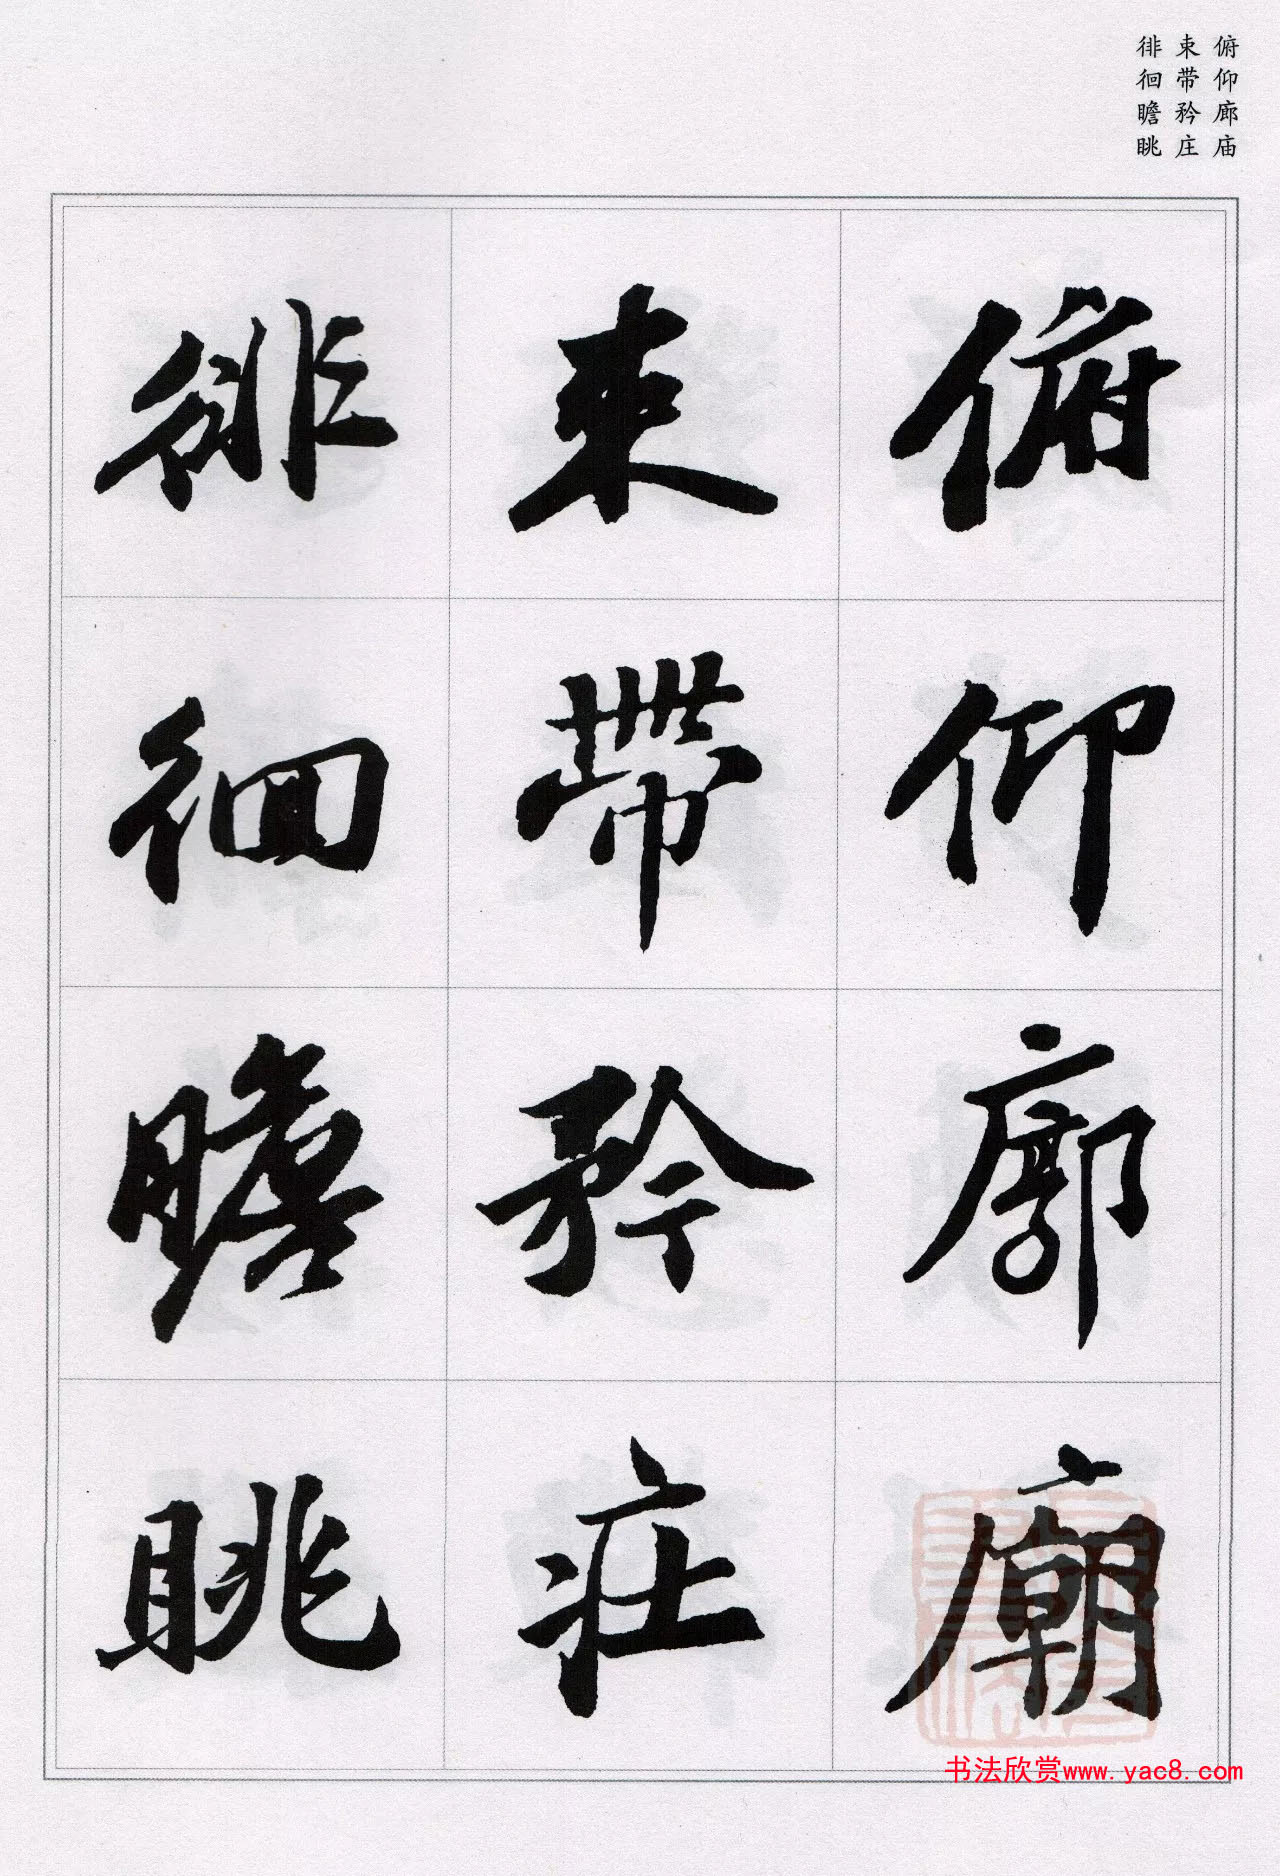 俯仰廊庙
束带矜庄
徘徊瞻眺
俯仰廊廟
束帶矜莊
徘徊瞻眺
书法欣赏www.yac8.com